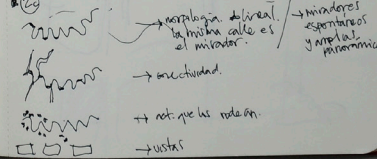 → morfología lineal.
la misma calle es
el mirador.
→ miradores
espontáneos
y amplias
panorámicas
→ conectividad.
→ act. que las rodean.
→ vistas